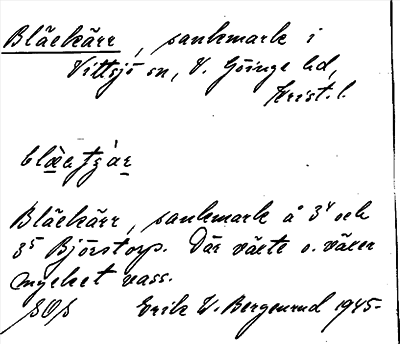 Bläekärr, sankmark i
Vittsjö sn, V. Göinge hd,
Krist. l.
Bläekärr, sankmark å 3⁴ och
3⁵ Björstorp. Där växte o. växer
mycket vass.
SOS Erik W. Bergenrud 1945-